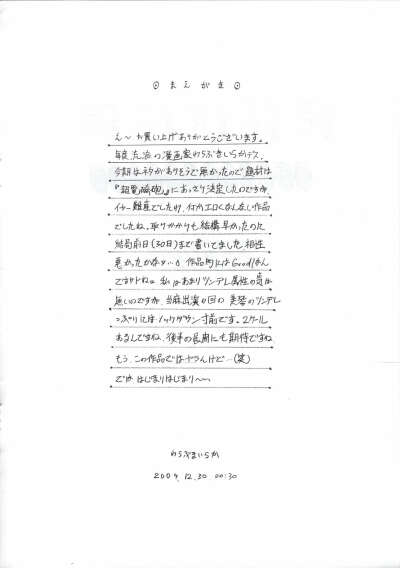 ◎ まえがき ◎
え〜お買い上げありがとうございます。
毎度 左治の漫画家 わらぶきいらかデス。
今期はネタがありそうで無かったので題材は
『超電磁砲』にあっさり決定したのですが
イヤー難産でしたね、何かエロくなんない作品
でしたね、取りかかりも結構早かったのに
結局前日(30日)まで書いてました 相性
悪かったかなぁ…。作品的にはGoodなん
ですけどね。私はあまりツンデレ属性の気は
無いのですが、当麻出演の回の美琴のツンデレ
っぷりにはノックダウン寸前です。2クール
あるしですね、後半の展開にも期待ですね
もう、この作品ではヤランけど…(笑)
では はじまりはじまり〜〜
わらぶきいらか
2009. 12. 30 00:30